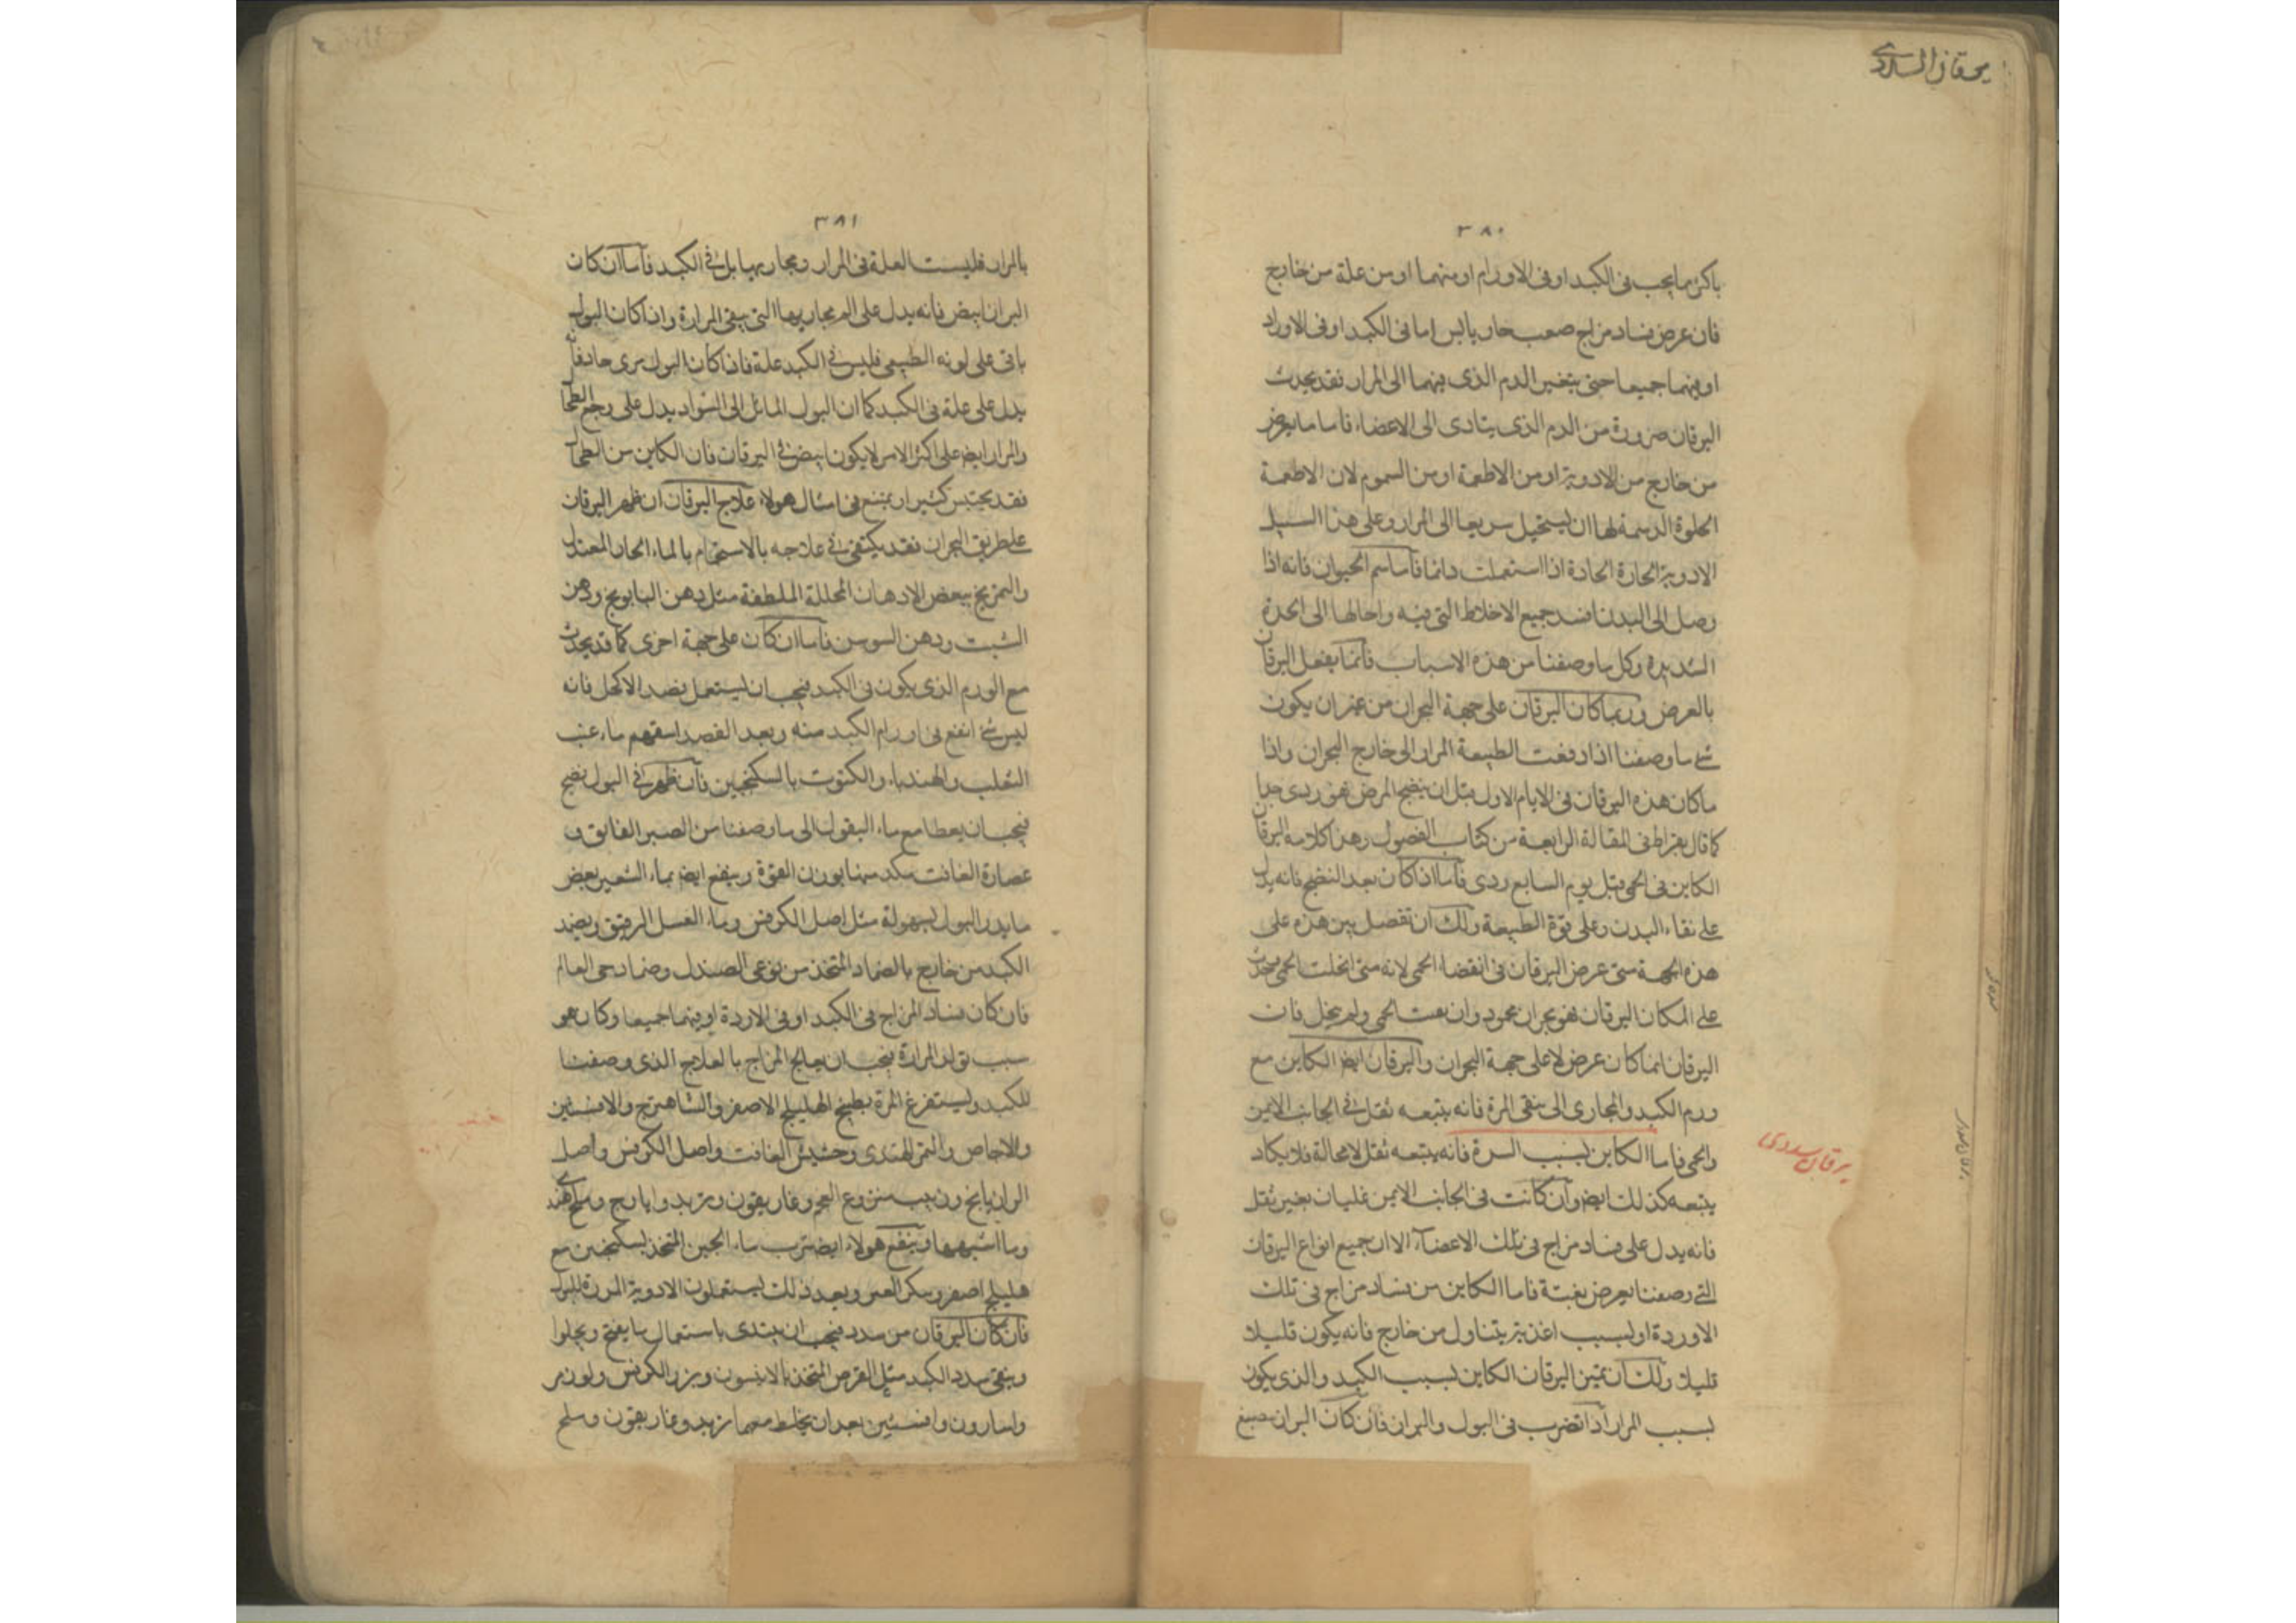 يرقان السددي
٣٨٠
باكثر مما يجب فى الكبد او فى الاورام او منهما او من علة من خارج
فان عرض فساد مزاج صعب حار يابس اما فى الكبد او فى الاوراد
او فيهما جميعا حتى يتغير الدم الذى فيهما الى المرار فقد يحدث
اليرقان ضرورة من الدم الذى يتادى الى الاعضاء فاما ما يعرض
من خارج من الادوية او من الاطعمة او من السموم لان الاطعمة
الحلوة الدسمة لها ان يستحيل سريعا الى المرار وعلى هذا السبيل
الادوية الحارة الحادة اذا استعملت دائما فاما سم الحيوان فانه اذا
وصل الى البدن افسد جميع الاخلاط التى فيه واحالها الى الحدة
الشديدة وكل ما وصفنا من هذه الاسباب فانما يفعل اليرقان
بالعرض وربما كان اليرقان على جهة البحران من غير ان يكون
شى ما وصفنا اذا دفعت الطبيعة المرار الى خارج البحران واذا
ما كان هذه اليرقان فى الايام الاول قبل ان ينضج المرض فهو ردى جدا
كما قال بقراط فى المقالة الرابعة من كتاب الفصول وهذا كلامه اليرقان
الكاين فى الحمى قبل يوم السابع ردى فاما اذا كان بعد النضج فانه يدل
على نقاء البدن وعلى قوة الطبيعة ولك ان تفصل بين هذه على
هذه الجهة متى عرض اليرقان فى انقضاء الحمى لانه متى انحلت الحمى يحدث
على المكان اليرقان فهو بحران محمود وان بقت الحمى ولم ينحل فان
اليرقان انما كان عرض لا على جهة البحران واليرقان ايضا الكاين مع
ورم الكبد والمجارى الى ينقى المرة فانه يتبعه ثقل فى الجانب الايمن
والحمى فاما الكاين بسبب السرة فانه يتبعه ثقل لا محالة فلا يكاد
يرقان سددى
يتبعه كذلك ايضا وان كانت فى الجانب الايمن غليان بغير ثقل
فانه يدل على فساد مزاج فى تلك الاعضاء الا ان جميع انواع اليرقان
التى وصفنا يعرض بغتة فاما الكاين من فساد مزاج فى تلك
الاوردة او بسبب اغذية يتناول من خارج فانه يكون قليلا
قليلا ولك ان تميز اليرقان الكاين بسبب الكبد والذى يكون
بسبب المرار اذا تضرب فى البول والبراز فان كان البراز صبغ
٣٨١
بالمرار فليست العلة فى المرار ومجاريها بل فى الكبد فاما ان كان
البراز ابيض فانه يدل على الم مجاريها التى ينقى المرارة واذا كان البول
باقى على لونه الطبيعى فليس فى الكبد علة فاذا كان البول مرى حادفا
يدل على علة فى الكبد كما ان البول المائل الى السواد يدل على وجع الطحا
والمرار ايضا على اكثر الامر لا يكون ابيض فى اليرقان فان الكاين من الطحا
فقد يحتبس كثيرا ويمتنع فى امثال هولاء علاج اليرقان ان ظهر اليرقان
على طريق البحران فقد يكتفى فى علاجه بالاستحمام بالماء الحار المعتدل
والتمريخ ببعض الادهان المحللة الملطفة مثل دهن البابونج ودهن
الشبت ودهن السوسن فاما ان كان على جهة اخرى كما قد يحدث
مع الورم الذى يكون فى الكبد فيجب ان يستعمل بفصد الاكحل فانه
ليس شى انفع فى اورام الكبد منه وبعد الفصد اسقهم ماء عنب
الثعلب والهندباء والكشوت بالسكنجبين فان ظهر فى البول نضج
فيجب ان يعطا مع ماء البقول الى ما وصفنا من الصبر الفايق و
عصارة الغافت مكد منها بوزن القوة وينفع ايضا بماء الشعير بعض
ما يدر البول بسهولة مثل اصل الكرفس وماء العسل الرقيق ويضمد
الكبد من خارج بالضماد المتخذ من نوعى الصندل وضماد حى العالم
فان كان فساد المزاج فى الكبد او فى الاردة او فيهما جميعا وكان هو
سبب تولد المرارة فيجب ان يعالج المزاج بالعلاج الذى وصفنا
للكبد وليستفرغ المرة بطبخ الهليلج الاصفر والشاهترج والافسنتين
والاجاص والتمر الهندى وحشيش الغافت واصل الكرفس واصل
الرازيانج وزبيب منزوع العجم وغاريقون وتربد وايارج وملح هندى
وما اشبهها وينفع هولاء ايضا شرب ماء الجبن المتخذ بسكنجبين مع
هليلج اصفر وسكر العشر وبعد ذلك يستعملون الادوية المدرة للبول
فان كان اليرقان من سدد فيجب ان يبتدى باستعمال ما يفتح ويجلوا
وينقى سدد الكبد مثل القرص المتخذ بالانيسون وبزر الكرفس ولوز مر
واسارون وافسنتين بعد ان يخلط معها تربد وغاريقون وملح